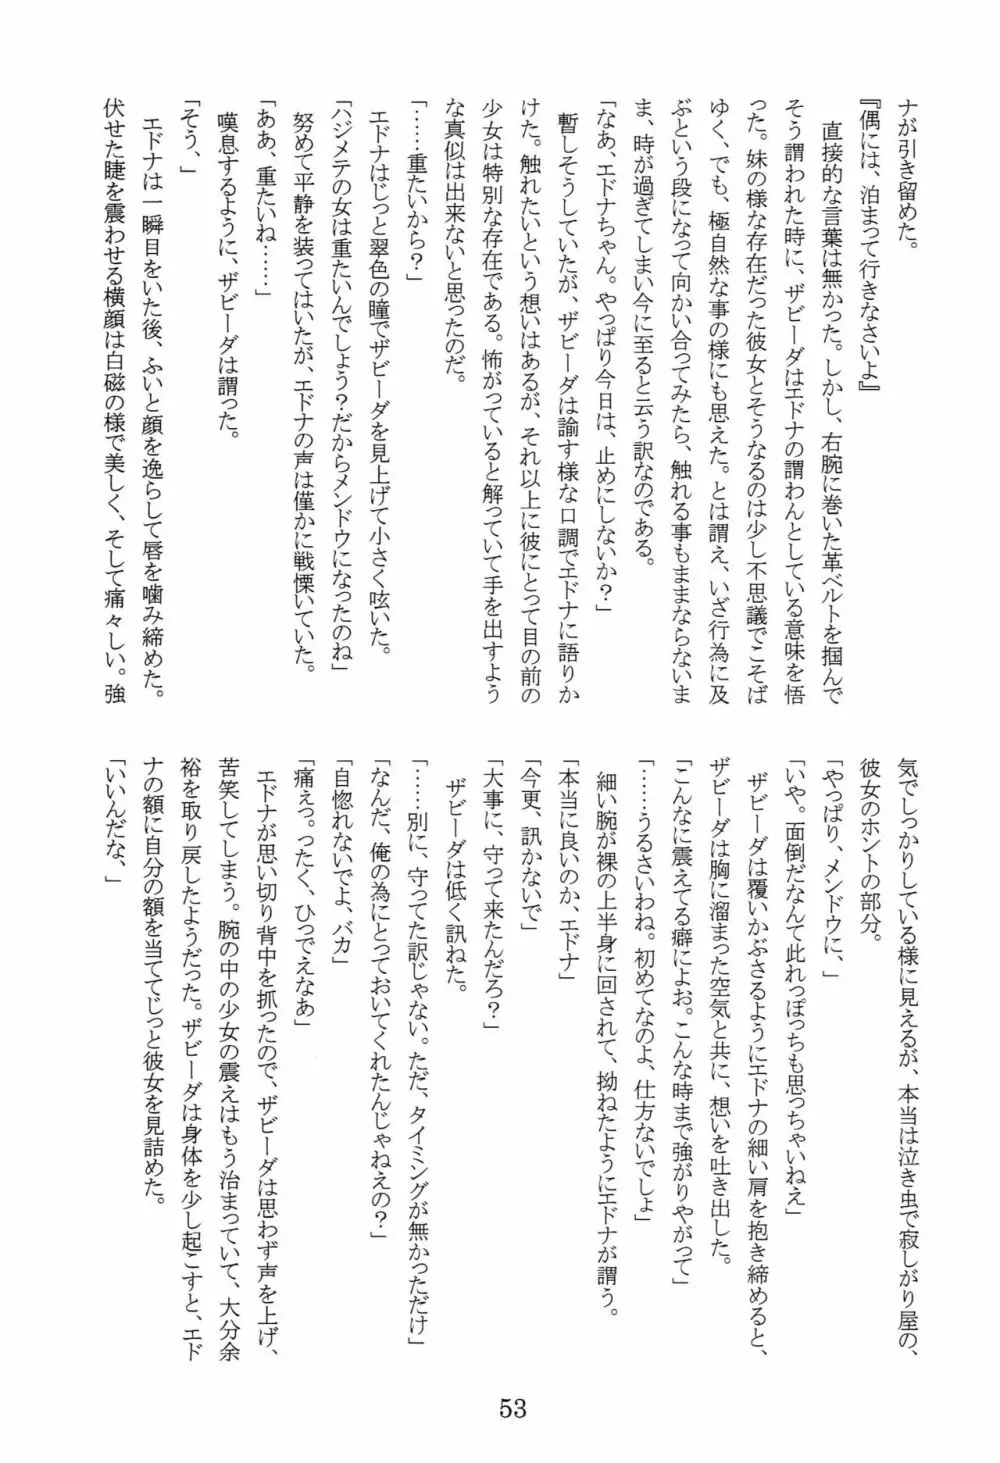 ナが引き留めた。
『偶には、泊まって行きなさいよ』
直接的な言葉は無かった。しかし、右腕に巻いた革ベルトを掴んで
そう謂われた時に、ザビーダはエドナの謂わんとしている意味を悟
った。妹の様な存在だった彼女とそうなるのは少し不思議でこそば
ゆく、でも、極自然な事の様にも思えた。とは謂え、いざ行為に及
ぶという段になって向かい合ってみたら、触れる事もままならないま
ま、時が過ぎてしまい今に至ると云う訳なのである。
「なあ、エドナちゃん。やっぱり今日は、止めにしないか？」
暫しそうしていたが、ザビーダは諭す様な口調でエドナに語りか
けた。触れたいという想いはあるが、それ以上に彼にとって目の前の
少女は特別な存在である。怖がっていると解っていて手を出すよう
な真似は出来ないと思ったのだ。
「……重たいから？」
エドナはじっと翠色の瞳でザビーダを見上げて小さく呟いた。
「ハジメテの女は重たいんでしょう？だからメンドウになったのね」
努めて平静を装ってはいたが、エドナの声は僅かに戦慄いていた。
「ああ、重たいね……」
嘆息するように、ザビーダは謂った。
「そう、」
エドナは一瞬目をいた後、ふいと顔を逸らして唇を噛み締めた。
伏せた睫を震わせる横顔は白磁の様で美しく、そして痛々しい。強
気でしっかりしている様に見えるが、本当は泣き虫で寂しがり屋の、
彼女のホントの部分。
「やっぱり、メンドウに、」
「いや。面倒だなんて此れっぽっちも思っちゃいねえ」
ザビーダは覆いかぶさるようにエドナの細い肩を抱き締めると、
ザビーダは胸に溜まった空気と共に、想いを吐き出した。
「こんなに震えてる癖によお。こんな時まで強がりやがって」
「……うるさいわね。初めてなのよ、仕方ないでしょ」
細い腕が裸の上半身に回されて、拗ねたようにエドナが謂う。
「本当に良いのか、エドナ」
「今更、訊かないで」
「大事に、守って来たんだろ？」
ザビーダは低く訊ねた。
「……別に、守ってた訳じゃない。ただ、タイミングが無かっただけ」
「なんだ、俺の為にとっておいてくれたんじゃねえの？」
「自惚れないでよ、バカ」
「痛ぇっ。ったく、ひっでえなあ」
エドナが思い切り背中を抓ったので、ザビーダは思わず声を上げ、
苦笑してしまう。腕の中の少女の震えはもう治まっていて、大分余
裕を取り戻したようだった。ザビーダは身体を少し起こすと、エド
ナの額に自分の額を当ててじっと彼女を見詰めた。
「いいんだな、」
53